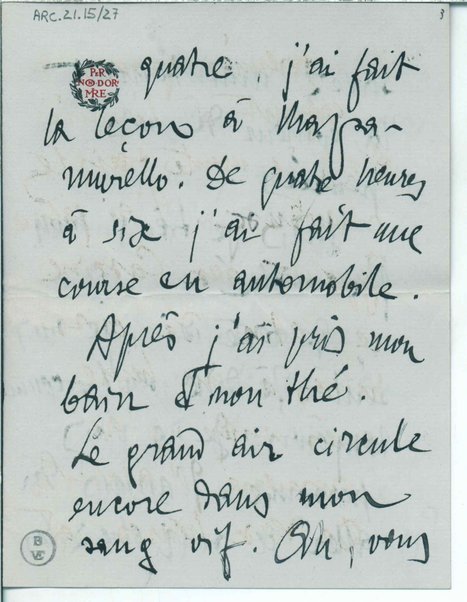 ARC.21.15/27
3
PER
NON DOR
MIRE
quatre, j'ai fait
la leçon à Malpa-
murello. De quatre heures
à six j'ai fait une
course en automobile.
Après j'ai pris mon
bain et mon thé.
Le grand air circule
encore dans mon
sang vif. Oh, vous
B
VE